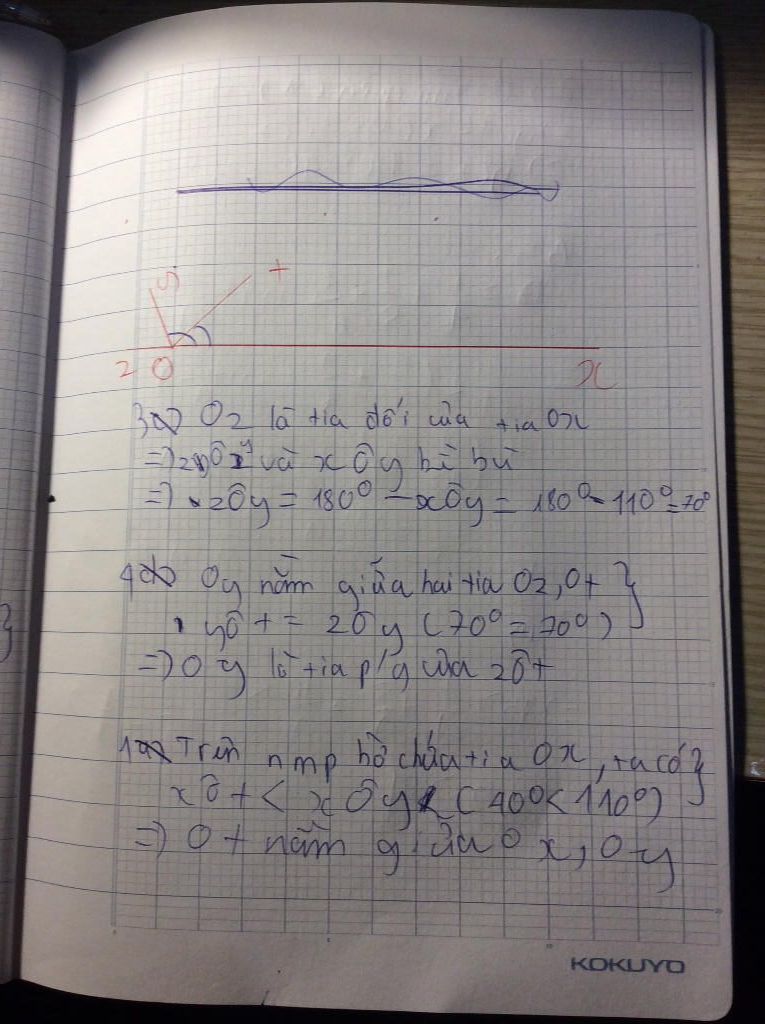 y
t
z O x
3a) Oz là tia đối của tia Ox
=) và xÔy kề bù
=) zÔy = 180⁰ - xÔy = 180⁰ - 110⁰ = 70⁰
4d) Oy nằm giữa hai tia Oz, Ot }
yÔt = zÔy (70⁰ = 70⁰)
=) Oy là tia p/g của zÔt
1a) Trên nmp bờ chứa tia Ox, ta có }
xÔt < xÔy (40⁰ < 110⁰)
=) Ot nằm giữa Ox, Oy
KOKUYO